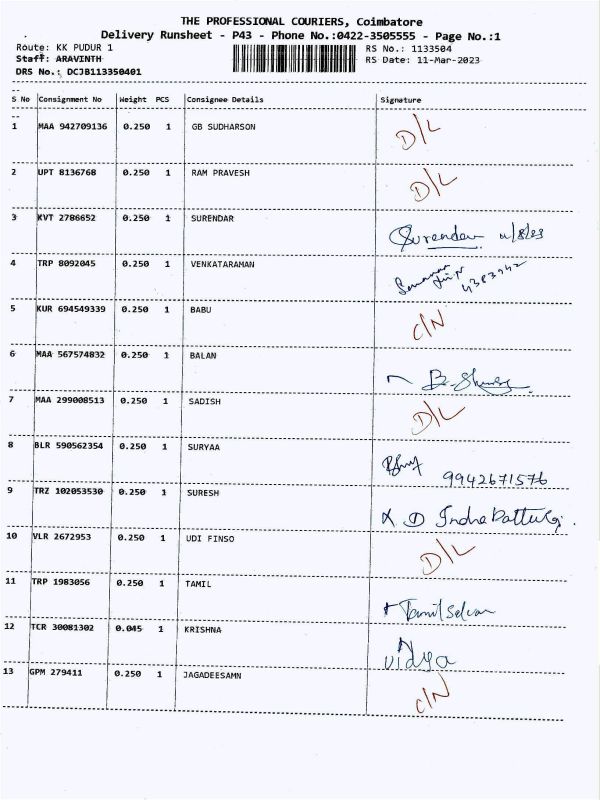 THE PROFESSIONAL COURIERS, Coimbatore
Delivery Runsheet - P43 - Phone No.:0422-3505555 - Page No.:1
Route: KK PUDUR 1 RS No.: 1133504
Staff: ARAVINTH RS Date: 11-Mar-2023
DRS No.: DCJB113350401
S No Consignment No Weight PCS Consignee Details Signature
1 MAA 942709136 0.250 1 GB SUDHARSON D/L
2 UPT 8136768 0.250 1 RAM PRAVESH D/L
3 KVT 2786652 0.250 1 SURENDAR Surendar
4 TRP 8092045 0.250 1 VENKATARAMAN
5 KUR 694549339 0.250 1 BABU C/N
6 MAA 567574832 0.250 1 BALAN
7 MAA 299008513 0.250 1 SADISH D/L
8 BLR 590562354 0.250 1 SURYAA 9942671576
9 TRZ 102053530 0.250 1 SURESH
10 VLR 2672953 0.250 1 UDI FINSO D/L
11 TRP 1983056 0.250 1 TAMIL Tamil Selvan
12 TCR 30081302 0.045 1 KRISHNA Vidya
13 GPM 279411 0.250 1 JAGADEESAMN C/N